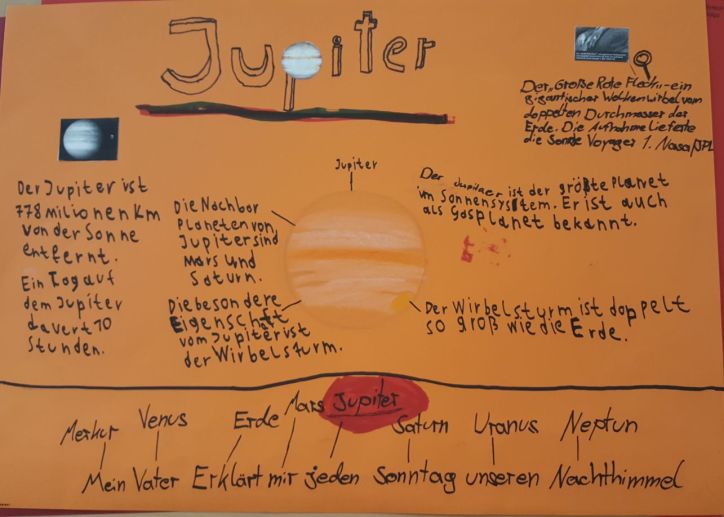 Jupiter
Der „Große Rote Fleck" - ein
gigantischer Wolkenwirbel vom
doppelten Durchmesser der
Erde. Die Aufnahme lieferte
die Sonde Voyager 1. Nasa/JPL
Der Jupiter ist
778 milionen Km
von der Sonne
entfernt.
Ein Tag auf
dem Jupiter
davert 10
Stunden.
Die Nachbar
Planeten von
Jupiter sind
Mars und
Saturn.
Die besondere
Eigenschaft
vom Jupiter ist
der Wirbelsturm.
Jupiter
Der Jupiter ist der größte Planet
im Sonnensystem. Er ist auch
als Gasplanet bekannt.
Der Wirbelsturm ist doppelt
so groß wie die Erde.
Merkur Venus Erde Mars Jupiter Saturn Uranus Neptun
Mein Vater Erklärt mir jeden Sonntag unseren Nachthimmel